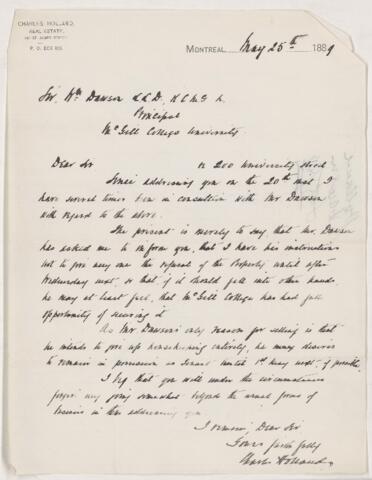 CHARLES HOLLAND,
REAL ESTATE,
ST. JAMES STREET
P. O. BOX
MONTREAL, May 25th 1889
Sir Wm Dawson L.L.D., K.C.M.G
Principal
McGill College University
Dear Sir 200 University Street
Since addressing you on the 20th inst I
have several times been in consultation with Mr Dawson
with regard to the above.
The present is merely to say that Mr. Dawson
has asked me to inform you, that I have his instructions
not to give any one the refusal of the Property until after
Wednesday next, so that, if it should fall into other hands
he may at least feel, that McGill College has had full
opportunity of securing it
As Mr Dawson's only reason for selling is that
he intends to give up housekeeping entirely, he may desire
to remain in possession as Tenant until 1st May next, if possible.
I beg that you will under the circumstances
forgive my going somewhat beyond the usual forms of
business in thus addressing you
I remain, Dear Sir
Yours faithfully
Charles Holland